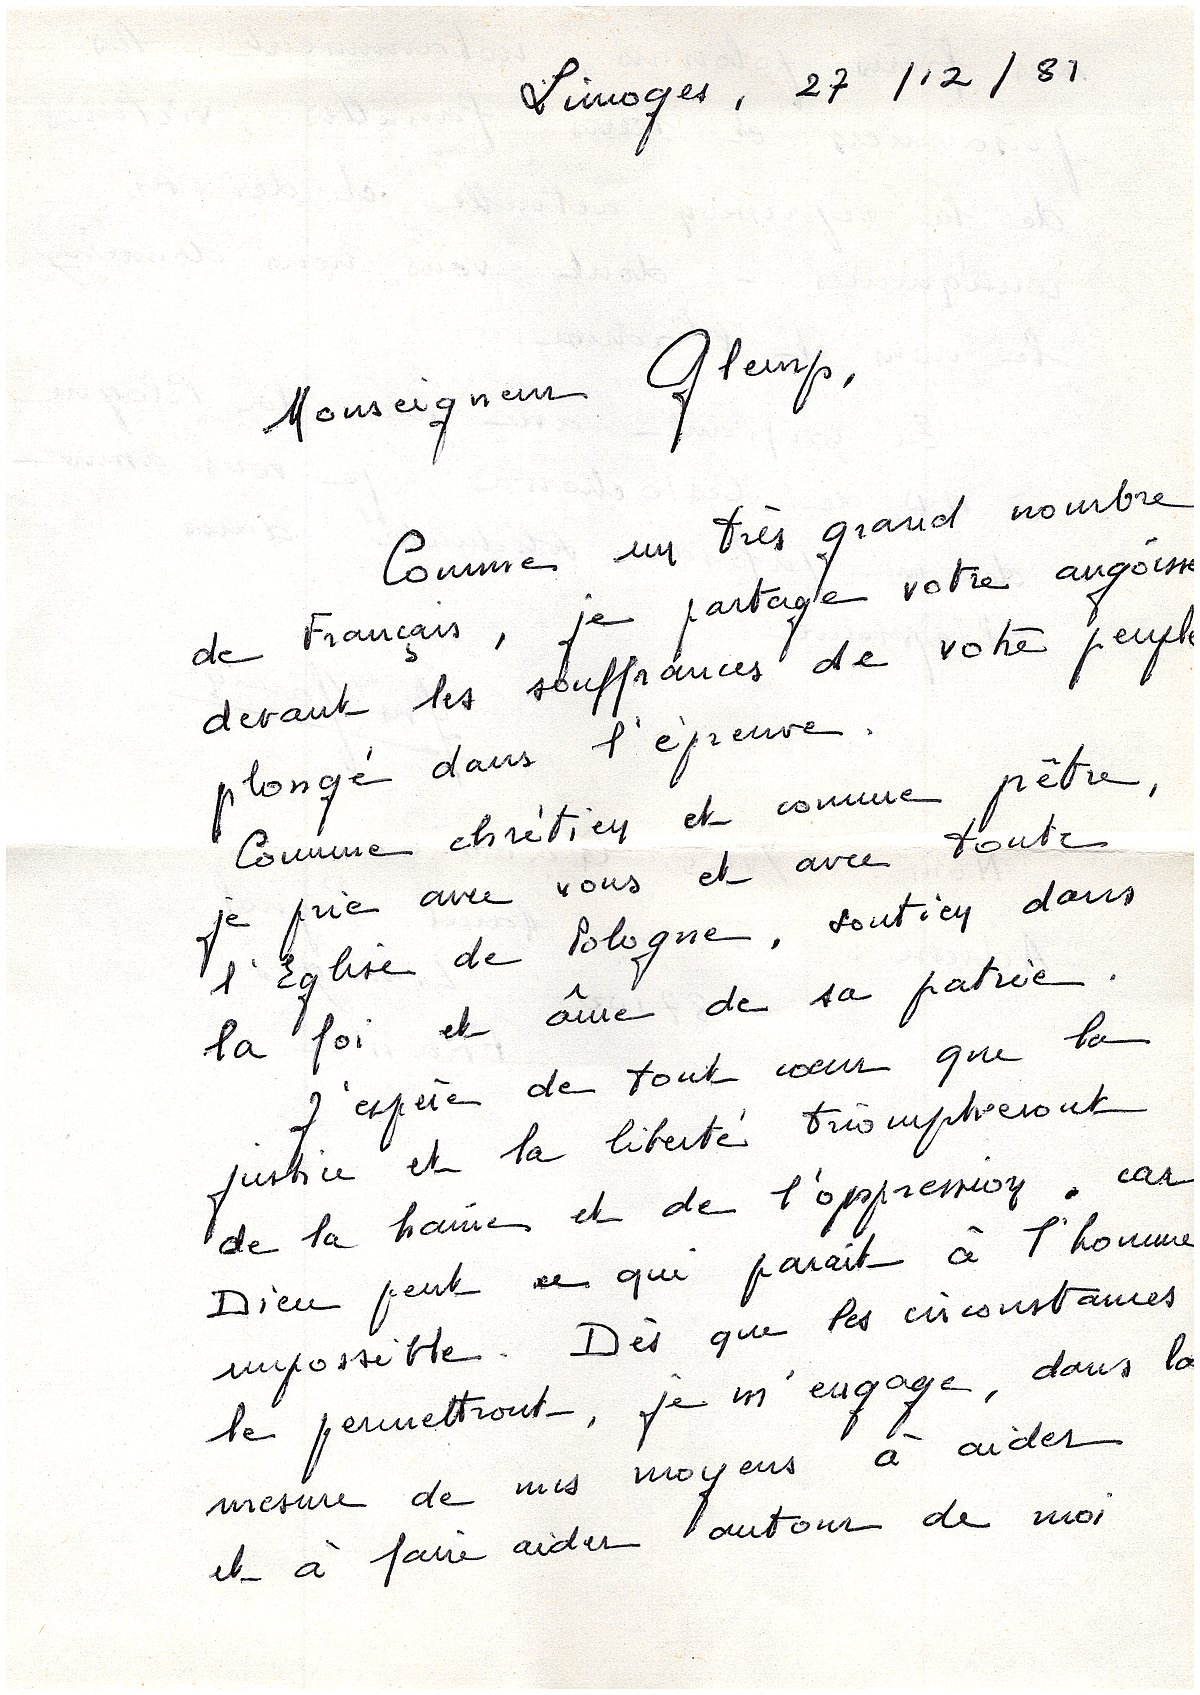 Limoges, 27/12/81
Monseigneur Glemp,
Comme un très grand nombre
de Français, je partage votre angoisse
devant les souffrances de votre peuple
plongé dans l'épreuve.
Comme chrétien et comme prêtre,
je prie avec vous et avec toute
l'Eglise de Pologne, soutien dans
la foi et âme de sa patrie.
J'espère de tout cœur que la
justice et la liberté triompheront
de la haine et de l'oppression, car
Dieu peut ce qui parait à l'homme
impossible. Dès que les circonstances
le permettront, je m'engage, dans la
mesure de mes moyens à aider
et à faire aider autour de moi